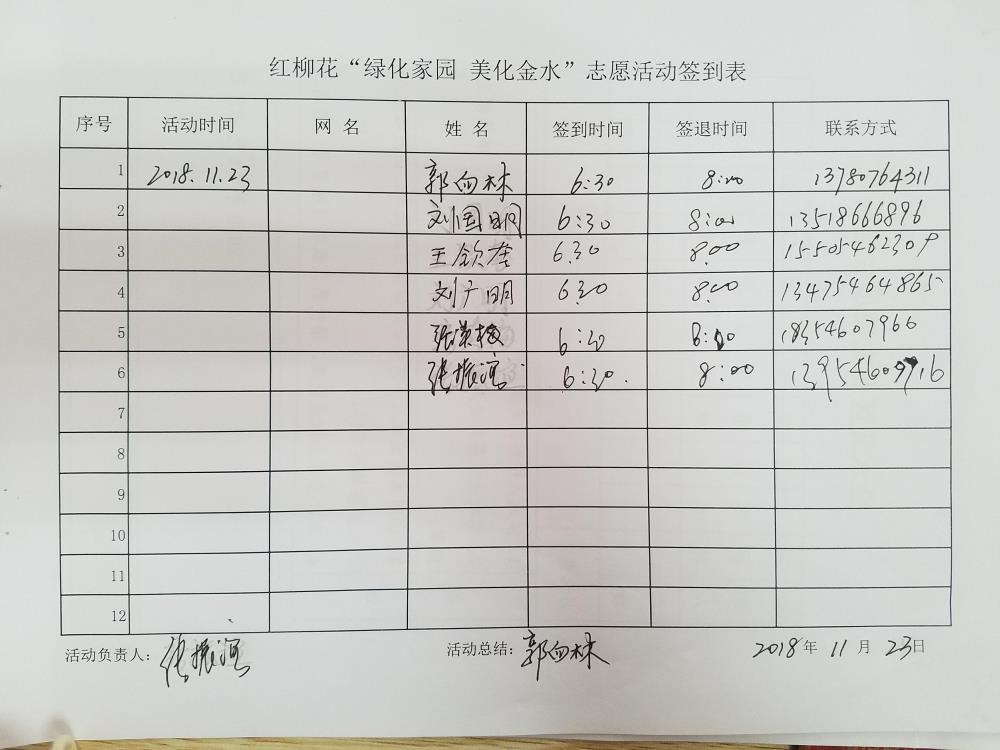 红柳花“绿化家园 美化金水”志愿活动签到表
序号 活动时间 网 名 姓 名 签到时间 签退时间 联系方式
1 2018.11.23 郭向林 6:30 8:00 13780764311
2 刘国明 6:30 8:00 13518666896
3 王钦奎 6:30 8:00 15505462309
4 刘广明 6:30 8:00 13475464865
5 张荣梅 6:30 8:00 18354607966
6 张振滨 6:30. 8:00
7
8
9
10
11
12
活动负责人: 张振滨 活动总结: 郭向林 2018年 11月 23日